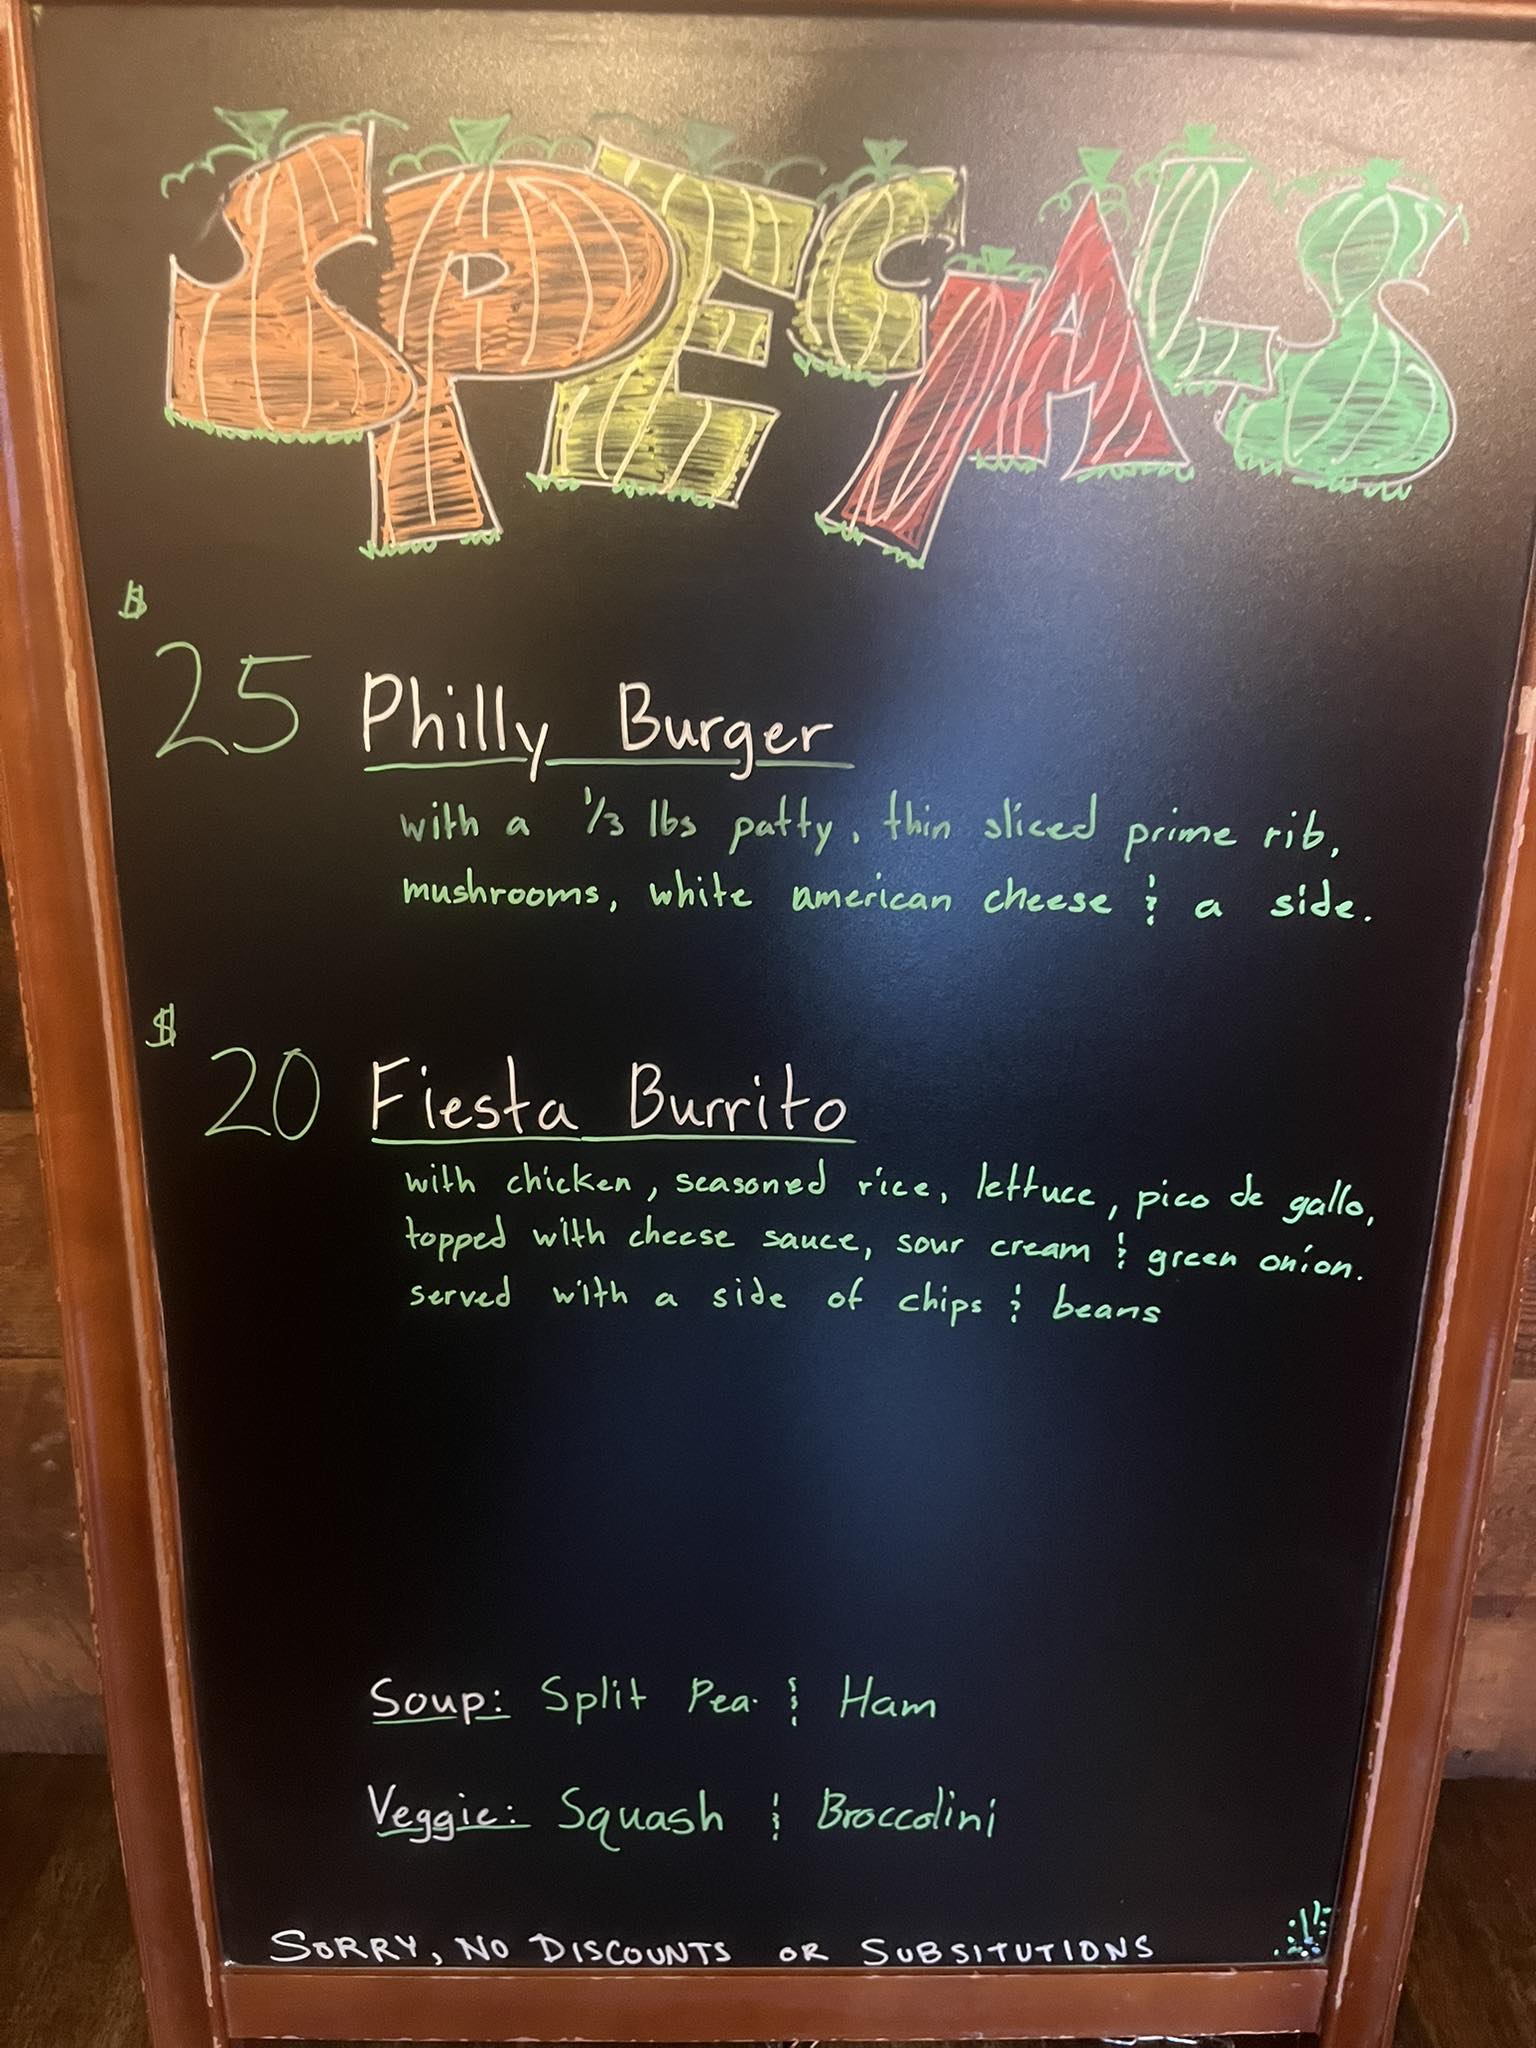 SPECIALS
$
25 Philly Burger
with a 1/3 lbs patty, thin sliced prime rib,
mushrooms, white american cheese & a side.
$
20 Fiesta Burrito
with chicken, seasoned rice, lettuce, pico de gallo,
topped with cheese sauce, sour cream & green onion.
served with a side of chips & beans
Soup: Split Pea & Ham
Veggie: Squash & Broccolini
SORRY, NO DISCOUNTS OR SUBSITUTIONS